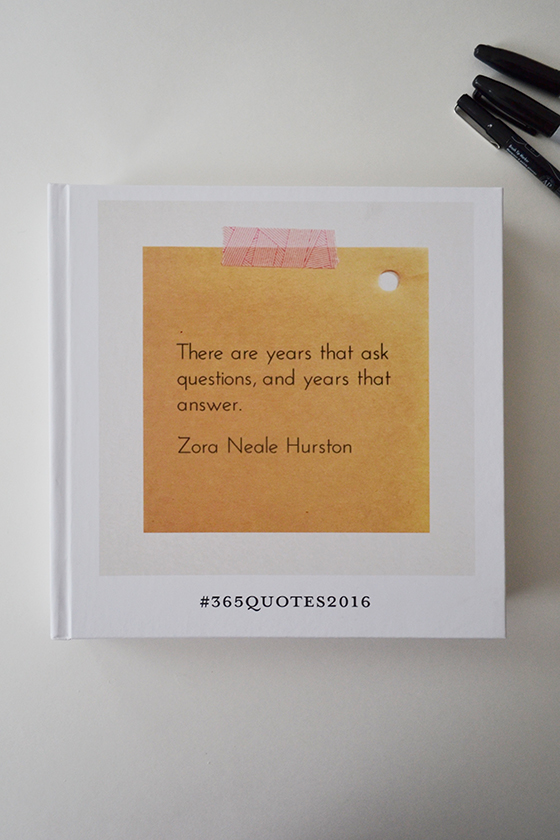 There are years that ask
questions, and years that
answer.
Zora Neale Hurston
#365QUOTES2016